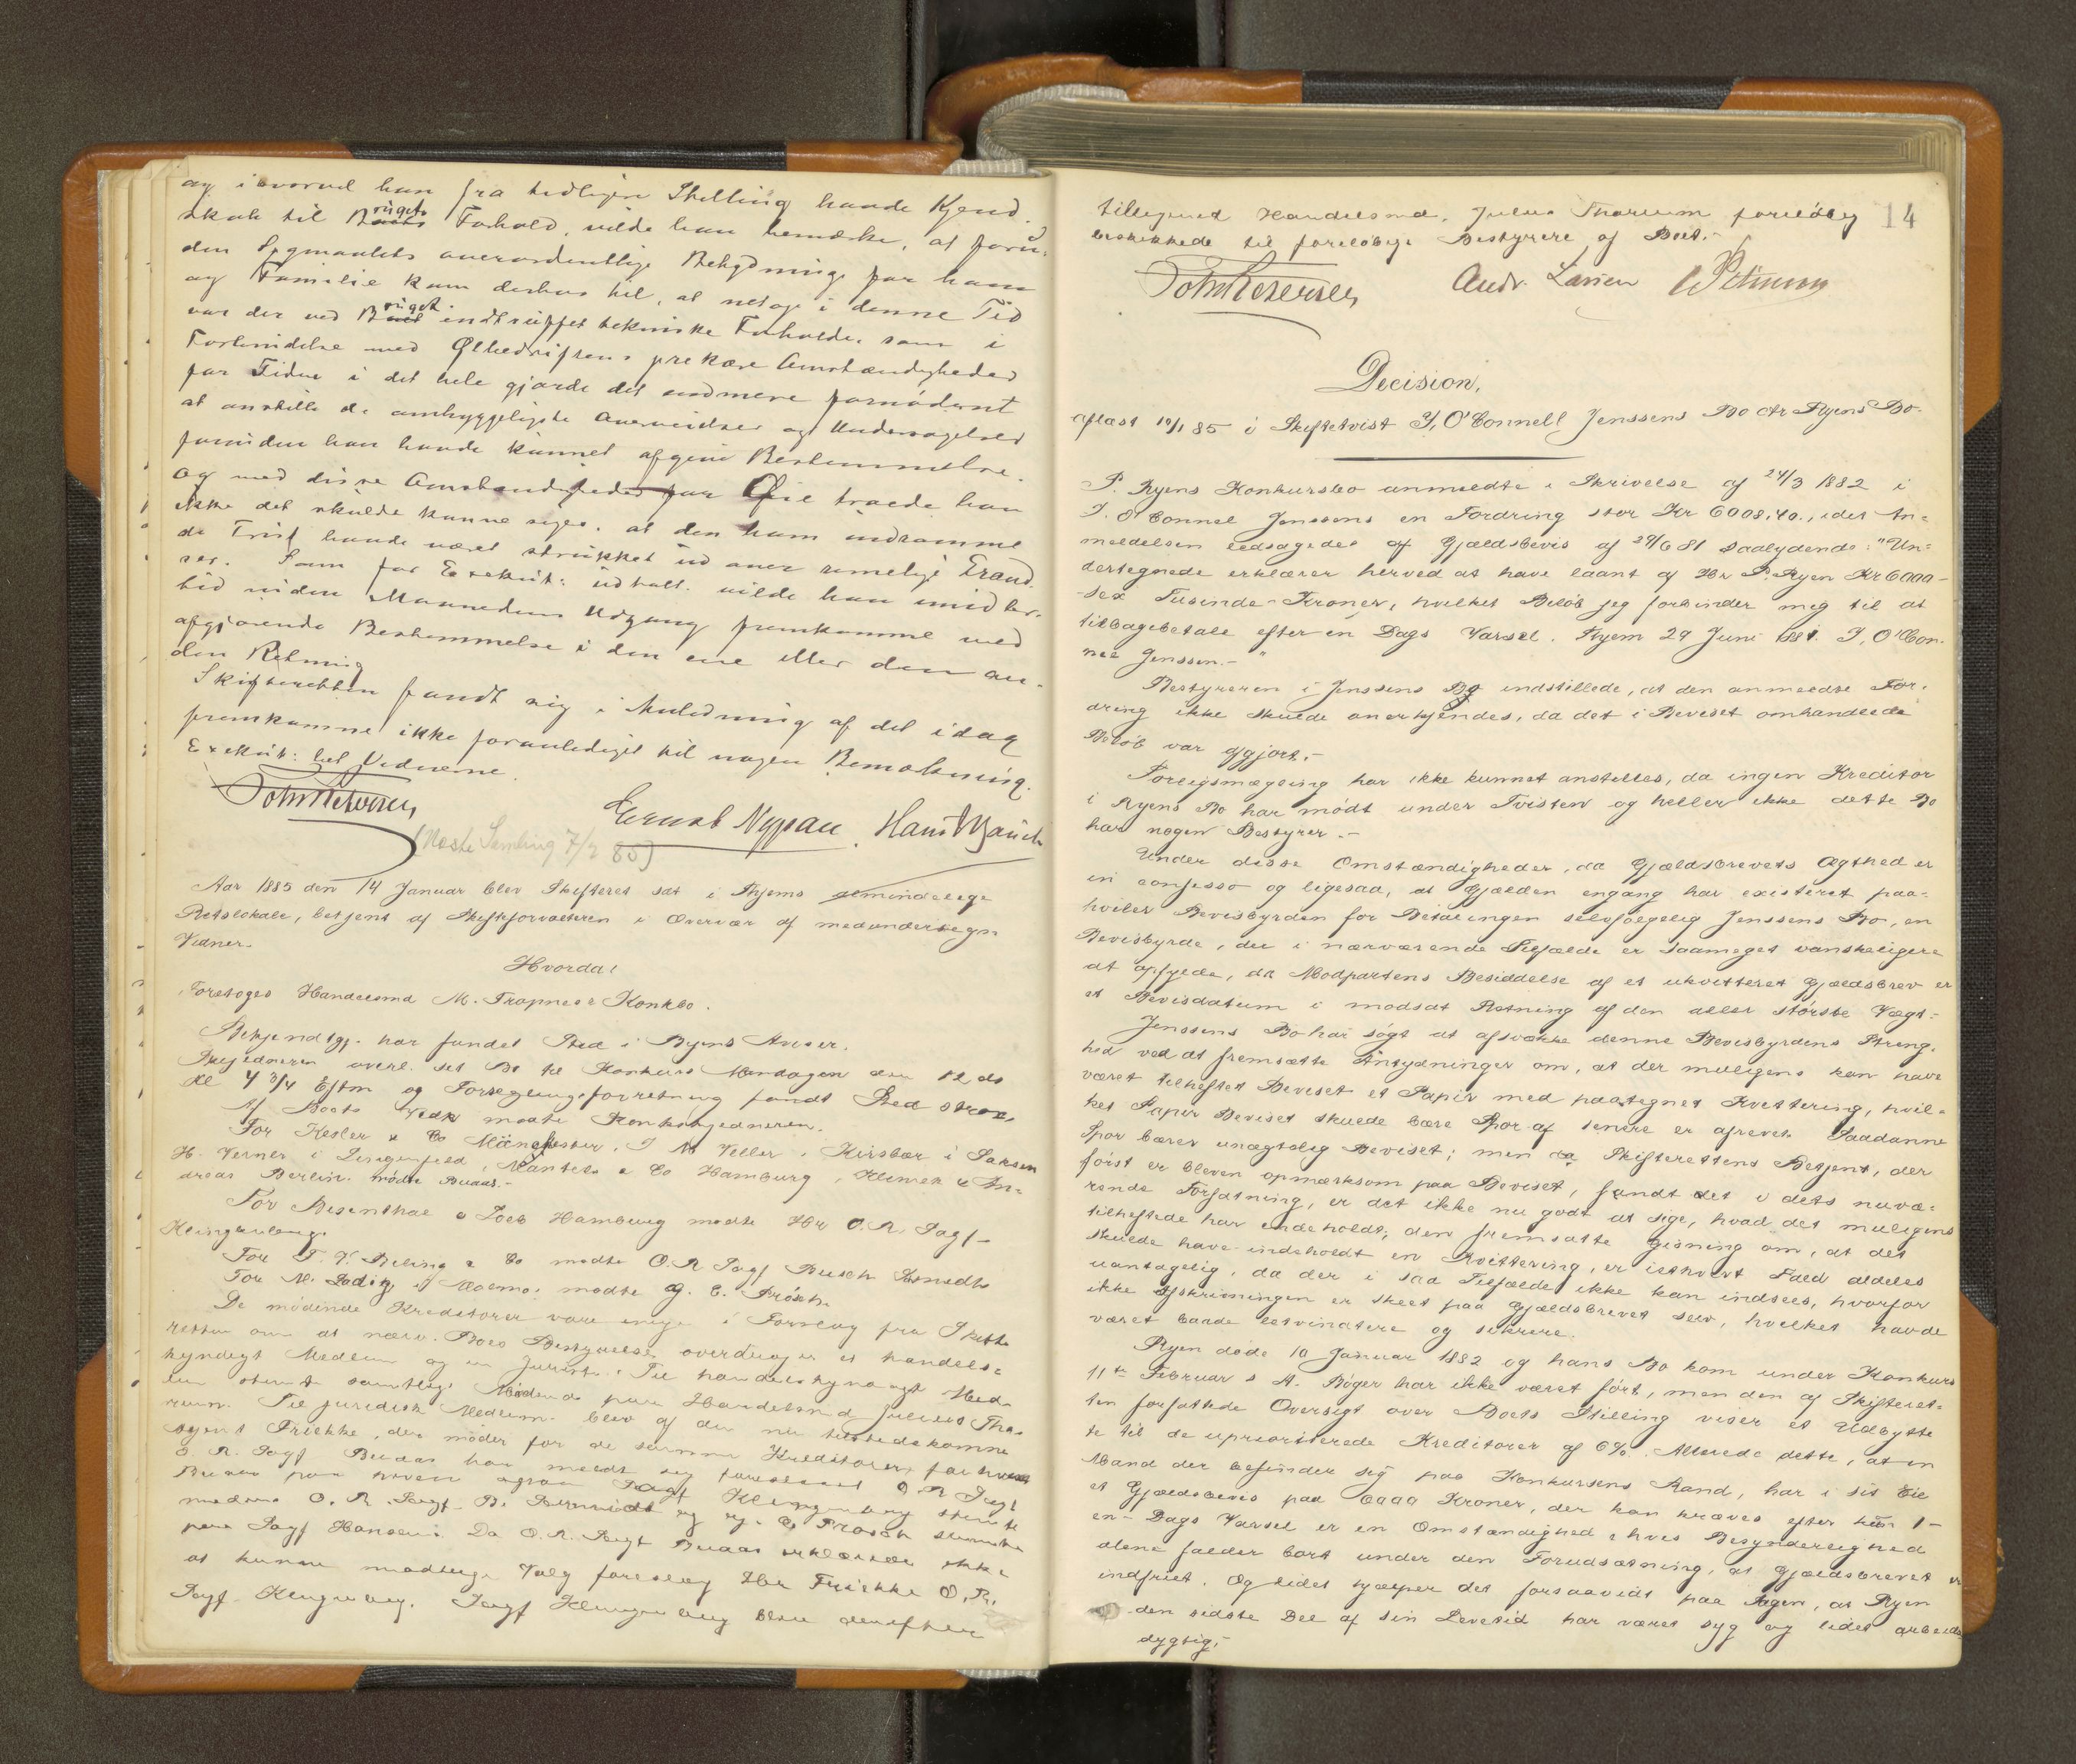 og i hvorvel han fra tidligere Stilling havde Kjend
skab til Bruget Forhold, vilde han bemærke, at foru
den Spgmaalets overordentlige Betydning for ham
og Familie kom derhos til, at netop i denne Tid
var der ved Bruget indtruffet tekniske Forholde, som i
Forbindelse med Ølbedriftens prekære Omstændigheder
for Tiden i det hele gjorde det endmere fornødent
at anstille de omhyggeligste Overveielser og Undersøgelser
forinden han havde kunnet afgive Bestemmelse.
Og med disse Omstændigheder for Øie troede han
ikke det skulde kunne siges, at den ham indrømme
de Frist havde været strukket ud over rimelige Grænd
ser. Som for Exekut: udtalt vilde han imidler
tid inden Maanedens Udgang fremkomme med
afgjørende Bestemmelse i den ene eller den an
den Retning
Skifteretten fandt sig i Anledning af det idag
fremkomne ikke foranlediget til nogen Bemærkning.
Exekut: Vidnerne.
Ernst Nypan. Hans
(Næste Samling 7/2 85)
Aar 1885 den 14 Januar blev Skifteret sat i Byens almindelige
Retslokale, betjent af Skifteforvalteren i Overvær af medundertegn
Vidner.
Hvorda!
Foretoges Handelsmd M. Trapness Konkbo.
Bekjendtgj. har fundet Sted i Byens Aviser.
Skyldneren overl. sit Bo til Konkurs Mandagen den 12 ds
Kl 4 3/4 Eftm og Forseglingsforretning fandt Sted strax.
Af Boets Vedk mødte Konkursskyldneren.
For Kesler & Co Mänchester, J M Veller i Kirsbær i Saksen
H. Verner i Lengenfeld, Mantels & Co Hamburg, Klemek & An=
dreas Berlin mødte Buaas.-
For Besenthal & Loeb Hamburg mødte Hr O.R. Sagf-
Klingenberg.
For T. V. Beling & Co mødte O.R Sagf Busch
For M. Lodig i Malmø mødte G. C. Frösch.
De mødende Kreditorer vare enige i Forslag fra Skifte
retten om at nærv. Boes Bestyrelse overdrages et handels=
kyndigt Medlem og en Jurist. Til handelskyndigt Med
lem stemte samtlige Mødende paa Handelsmd Julius Tho
rum. Til juridisk Medlem blev af de nu tilstedekomne
Agent Friekke, der møder for de samme Kreditorer for hvem
O. R. Sagf Buaas har meldt sig foreslaaet O.R Sagf
Buaas paa hvem ogsaa Sagf Klingenberg stemte
medens O. R. Sagf B. og G. C. Frösch stemte
paa Sagf Hansen. Da O.R. Sagf Buaas erklærede ikke
at kunne modtage Valg foreslog Hr Friekke O.R.
Sagf Klingenberg. Sagf Klingenberg blev derefter
14
tilligemed Handelsmd. Julius Thorum foreløbig
beskikkede til foreløbige Bestyrere af Boet.-
Andr. Larsen
Decision,
aflæst 10/1 85 i Skiftetvist J, O'Connell Jenssens Bo ctr Ryens Bo.
P. Ryens Konkursbo anmeldte i Skrivelse af 24/3 1882 i
J. O'Connel Jenssens en Fordring stor Kr 6008,40., idet An=
meldelsen ledsagedes af Gjældsbevis af 29/6 81 saalydende: "Un=
dertegnede erklærer herved at have laant af Hr P. Ryen Kr 6000-
-sex Tusinde-Kroner, hvilket Beløb jeg forbinder mig til at
tilbagebetale efter en Dags Varsel. Ryem 29 Juni 1881. J, O'Con-
nel Jenssen.- "
Bestyreren i Jenssens Bo indstillede, at den anmeldte For.
dring ikke skulde anerkjendes, da det i Beviset omhandlede
Beløb var opgjort.-
Forligsmægling har ikke kunnet anstilles, da ingen Kreditor
i Ryens Bo har mødt under Tvisten og heller ikke dette Bo
har nogen Bestyrer.-
Under disse Omstændigheder, da Gjældsbrevets Ægthed er
in confesso og ligesaa, at Gjælden engang har existeret paa-
hviler Bevisbyrden for Betalingen selvfølgelig Jenssens Bo, en
Bevisbyrde, der i nærværende Tilfælde er saameget vanskeligere
at opfylde, da Modpartens Besiddelse af et ukvitteret Gjældsbrev er
et Bevisdatum i modsat Retning af den aller største Vægt=
Jenssens Bo har søgt at afsvække denne Bevisbyrdens Streng.
hed ved at fremsætte Antydninger om, at der muligens kan have
været tilheftet Beviset et Papir med paategnet Kvittering, hvil=
ket Papir Beviset skulde bære Spor af senere er afrevet. Saadanne
Spor bærer unægtelig Beviset; men da Skifterettens Betjent, der
først er bleven opmærksom paa Beviset, fandt det i dets nuvæ.
rende Forfatning, er det ikke nu godt at sige, hvad det muligens
tilheftede har indeholdt; den fremsatte Gisning om, at det
skulde have indeholdt en Kvittering, er iethvert Fald aldeles
uantagelig, da der i saa Tilfælde ikke kan indsees, hvorfor
ikke Afskrivningen er skeet paa Gjældsbrevet selv, hvilket havde
været baade letvintere og sikrere.
Ryen døde 10 Januar 1882 og hans Bo kom under Konkurs
11te Februar s A. Bøger har ikke været ført, men den af Skifteret=
ten forfattede Oversigt over Boets Stilling viser et Udbytte
te til de uprioriterede Kreditorer af 6%. Allerede dette, at en
Mand der befinder sig paa Konkursens Rand, har i sit Eie
et Gjældsbevis paa 6000 Kroner, der kan kræves efter kun 1-
en- Dags Varsel er en Omstændighed, hvis Besynderlighed
alene falder bort under den Forudsætning, at Gjældsbrevet er
indfriet. Og lidet hjælper det forsaavidt paa Sagen, at Ryen
den sidste Del af sin Levetid har været syg og lidet arbeids
dygtig;-